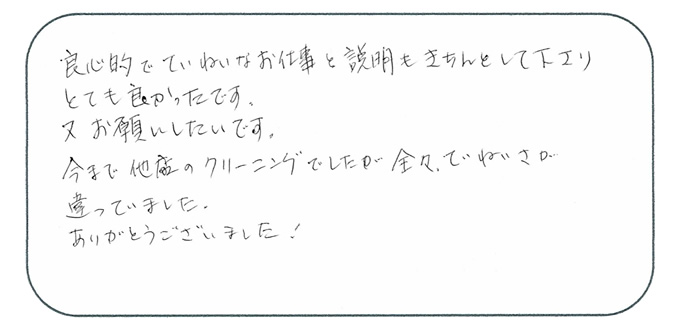 良心的でていねいなお仕事と説明もきちんとして下さり
とても良かったです、
又お願いしたいです。
今まで他店のクリーニングでしたが全々、ていねいさが
違っていました。
ありがとうございました!